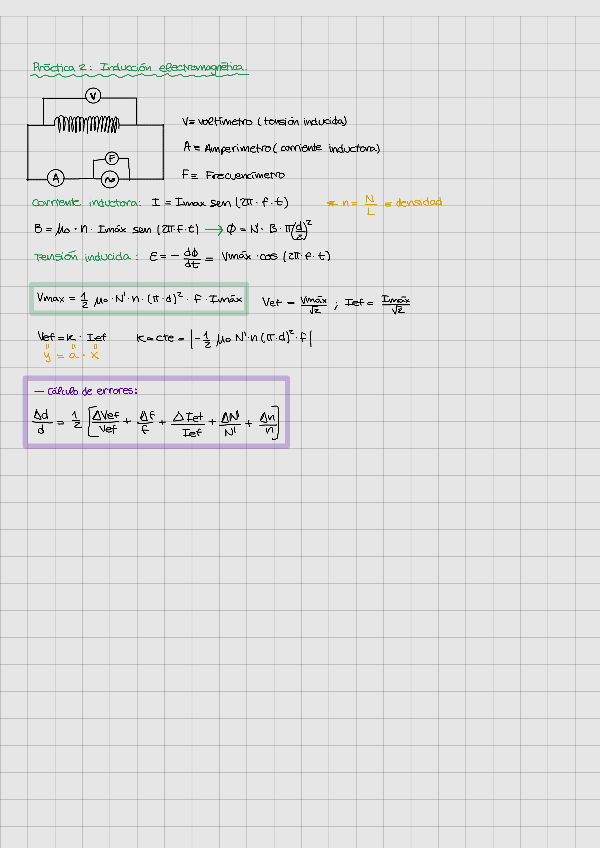 Práctica 2: Inducción electromagnética.
V
F
A
V = voltímetro (tensión inducida)
A = Amperímetro (corriente inductora)
F = Frecuencímetro
Corriente inductora: I = Imax sen (2π · f · t)
* n = N/L = densidad
B = μo · n · Imáx sen (2π · f · t) → ϕ = N' · B · π(d/2)²
Tensión inducida: ε = - dϕ/dt = Vmáx · cos (2π · f · t)
Vmax = 1/2 μo · N' · n · (π · d)² · f · Imáx
Vef = Vmáx/√2 ; Ief = Imáx/√2
Vef = K · Ief
K = cte = |-1/2 μo N' · n (π · d)² · f|
y = a · x
— Cálculo de errores:
Δd/d = 1/2 [ΔVef/Vef + Δf/f + ΔIef/Ief + ΔN'/N' + Δn/n]